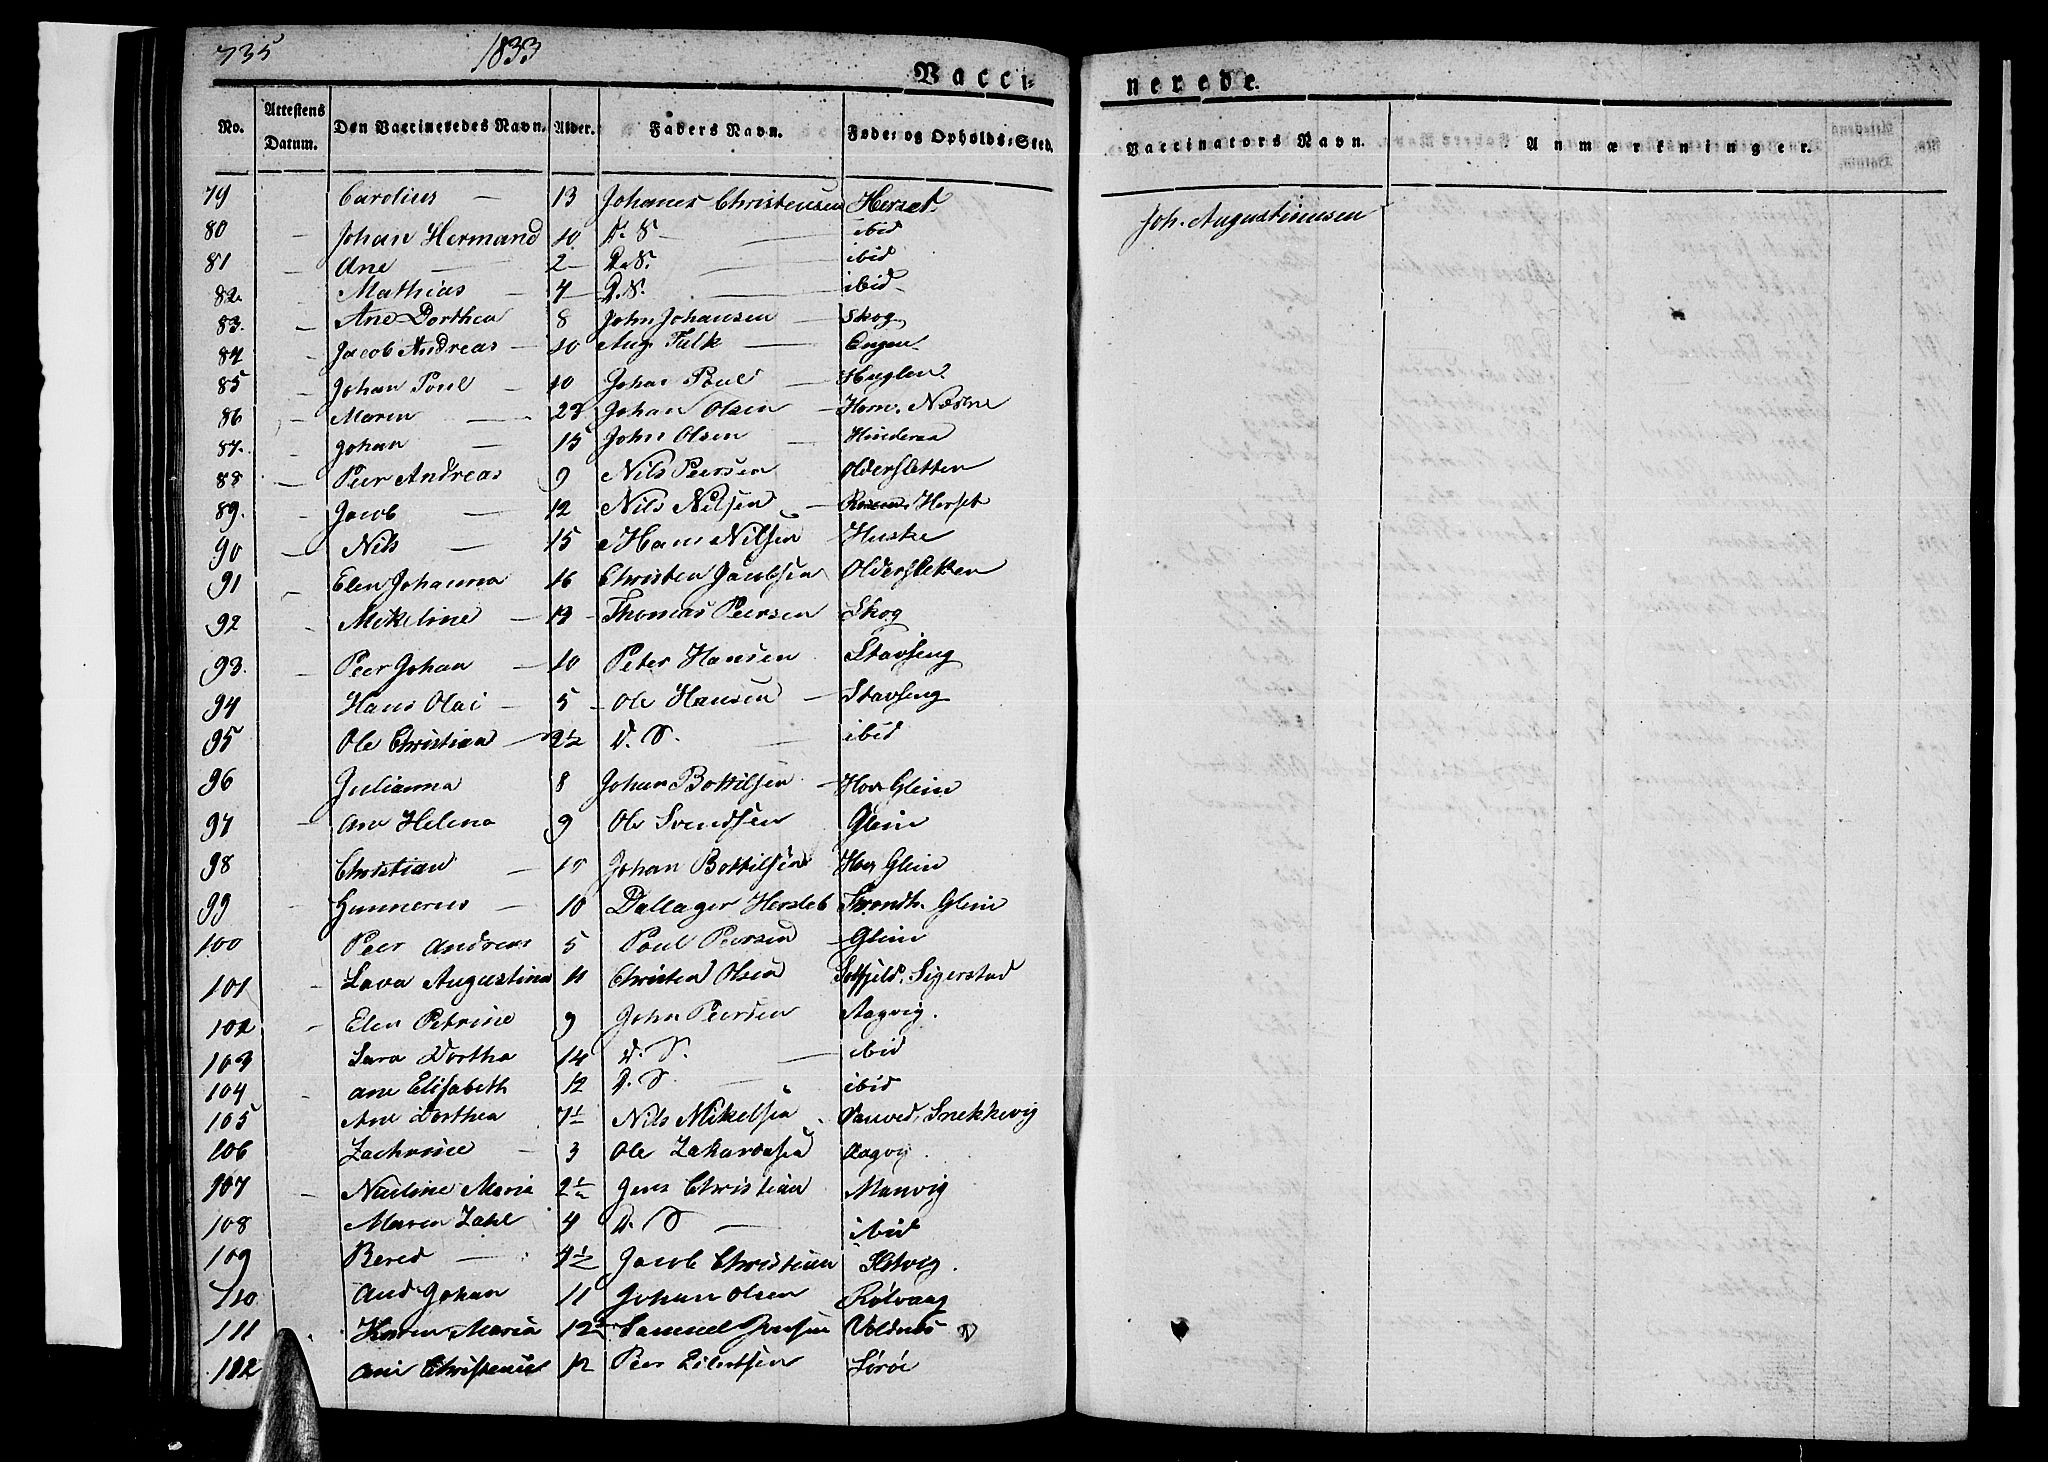 735 1833
Vacci- nerede.
No. Attestens Datum. Den Vaccineredes Navn. Alder. Faders Navn. Føde- og Opholds-Sted. Vaccinators Navn. Anmærkninger.
79 Carolius — 13 Johanes Christensen Herset. Joh. Augustinusen
80 — Johan Hermand 10 D. S — ibid
81 — Ane — 2 — D. S. — ibid
82. — Mathias — 4 — D. S. — ibid
83. — Ane Dorthea 8 John Johansen — Skog
84 — Jacob Andreas — 10 Aug. Falk — Engen
85 — Johan Poul — 10 Johan Poul — Huglen
86 — Maren — 23 Johan Olsen — Hem. Næsne
87. — Johan — 15 John Olsen — Hinderaa
88 — Peer Andreas 9 Nils Peersen Oldersletten
89. — Jacob — 12 Nils Nilsen — Herset
90 — Nils — 15 Hans Nilsen — Huske
91 — Elen Johanna 16 Christen Jacobsen Oldersletten
92 — Mikeline — 13 — Thomas Peersen Skog
93. — Peer Johan — 10 Peter Hansen Stavseng
94 Hans Olai — 5 — Ole Hansen — Stavseng
95 Ole Christian — 2½ D. S. — ibid
96 Julianna 8 Johan Bottilsen — Hov Glein
97 — Ane Helena 9 Ole Svendsen Glein
98 Christian — 10 Johan Bottilsen Hov Glein
99 — Gunnerus — 10 Dallager Hersleb Trondh. Glein
100 Peer Andreas 5 Poul Peersen — Glein
101 — Lava Augustina 11 Christen Olsen Sigerstad
102 — Elen Petrine 9 John Peersen Aagvig.
103 Sara Dortha 14 D. S. — ibid
104 — Ane Elisabeth 12 D. S. — ibid
105 Ane Dorthea 7½ Nils Mikelsen Snekkevig
106 Zachrine — 3 Ole Zakariasen Aagvig.
107 — Nicline Maria 2½ Jens Christian Manvig
108 Maren Zahl 4 D. S — ibid
109 Bered — 4½ Jacob Christian Hetvig.
110 And Johan 11 Johan Olsen Rølvaag
111 Karen Maria 12 Samuel Jensen Voldnes
112 Ane Christense 12 Peer Eilertsen Sørøe